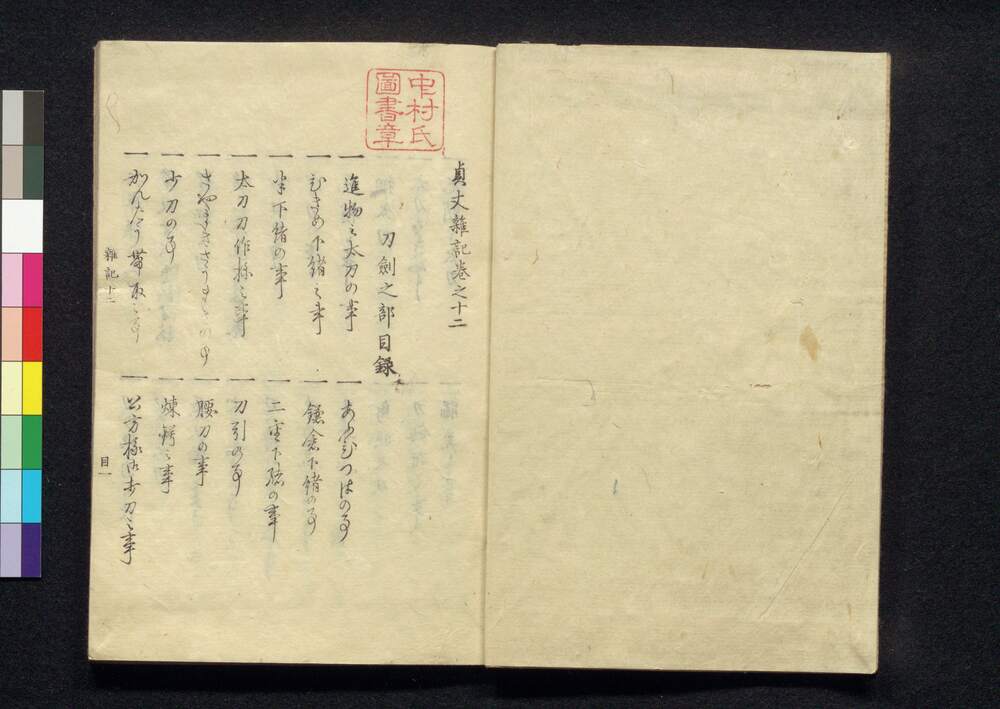 中村氏
圖書章
貞丈雜記巻之十二
刀劍之部目録
一 進物之太刀の事
一 あふひつはの事
一 むきめ下緒之事
一 鎌倉下緒の事
一 半下緒の事
一 二重下緒の事
一 太刀刀作材之事
一 刀引の事
一 さやまきさうまきの事
一 腰刀の事
一 少刀の事
一 煉鍔之事
一 帯取之事
一 公方様御赤刀之事
雜記十二
目一